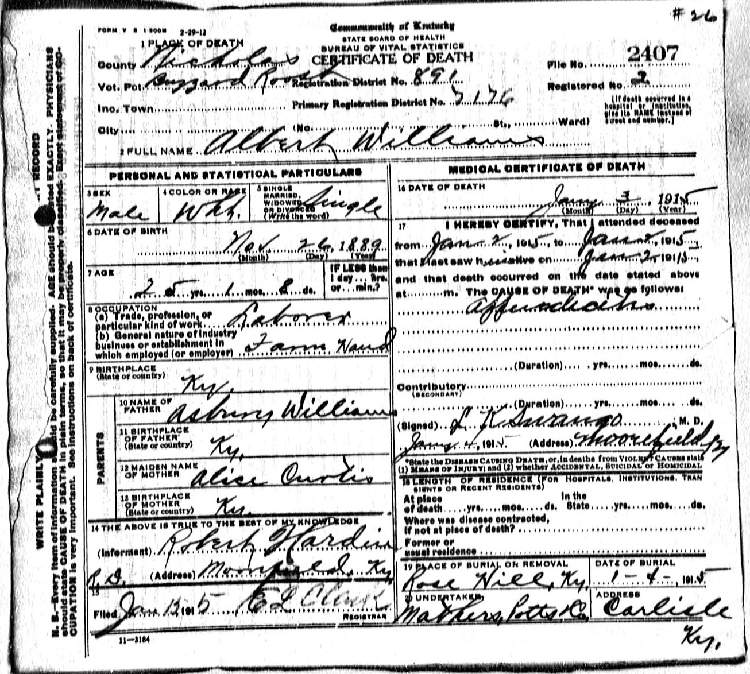 # 26
FORM V S 1 2-29-12
Commonwealth of Kentucky
STATE BOARD OF HEALTH
BUREAU OF VITAL STATISTICS
CERTIFICATE OF DEATH
1 PLACE OF DEATH
County Nicholas
Vot. Pct Buzzard Roost Registration District No. 891
Inc. Town Primary Registration District No. 7176
City (No. St., Ward)
File No. 2407
Registered No. 2
[If death occurred in a
hospital or institution,
give its NAME instead of
street and number.]
2 FULL NAME Albert Williams
PERSONAL AND STATISTICAL PARTICULARS
3 SEX
Male
4 COLOR OR RACE
Wht.
5 SINGLE
MARRIED,
WIDOWED
OR DIVORCED
(Write the word)
Single
6 DATE OF BIRTH
Nov 26, 1889
(Month) (Day) (Year)
7 AGE
25 yrs. 1 mos. 8 ds.
IF LESS than
1 day, hrs.
or min.?
8 OCCUPATION
(a) Trade, profession, or
particular kind of work Laborer
(b) General nature of industry
business or establishment in
which employed (or employer) Farm Hand
9 BIRTHPLACE
(State or country) Ky.
PARENTS
10 NAME OF
FATHER Asbury Williams
11 BIRTHPLACE
OF FATHER
(State or country) Ky.
12 MAIDEN NAME
OF MOTHER Alice Curtis
13 BIRTHPLACE
OF MOTHER
(State or country) Ky.
14 THE ABOVE IS TRUE TO THE BEST OF MY KNOWLEDGE
(Informant) Robert Hardin
R.D. (Address) Moorefield, Ky.
15
Filed Jan 15 1915 E L Clark
REGISTRAR
11—3184
MEDICAL CERTIFICATE OF DEATH
16 DATE OF DEATH
Jany 3, 1915
(Month) (Day) (Year)
17 I HEREBY CERTIFY, That I attended deceased
from Jan 2, 1915, to Jan 2, 1915,
that I last saw him alive on Jan 2, 1915,
and that death occurred on the date stated above
at m. The CAUSE OF DEATH* was as follows:
Appendicitis
(Duration) yrs. mos. ds.
Contributory
(SECONDARY)
(Duration) yrs. mos. ds.
(Signed) L K Swango, M. D.
Jany 4, 1915. (Address) Moorefield Ky
*State the DISEASE CAUSING DEATH, or, in deaths from VIOLENT CAUSES state
(1) MEANS OF INJURY; and (2) whether ACCIDENTAL, SUICIDAL or HOMICIDAL
18 LENGTH OF RESIDENCE (FOR HOSPITALS, INSTITUTIONS, TRAN
SIENTS OR RECENT RESIDENTS)
At place In the
of death yrs. mos. ds. State yrs. mos. ds.
Where was disease contracted,
if not at place of death?
Former or
usual residence
19 PLACE OF BURIAL OR REMOVAL
Rose Hill, Ky.
DATE OF BURIAL
1-4-, 1915
20 UNDERTAKER
Mathers, Potts & Co
ADDRESS
Carlisle
Ky.
WRITE PLAINLY RECORD
N. B.—Every item of information should be carefully supplied. AGE should be stated EXACTLY. PHYSICIANS
should state CAUSE OF DEATH in plain terms, so that it may be properly classified. Exact statement of OC-
CUPATION is very important. See instructions on back of certificate.